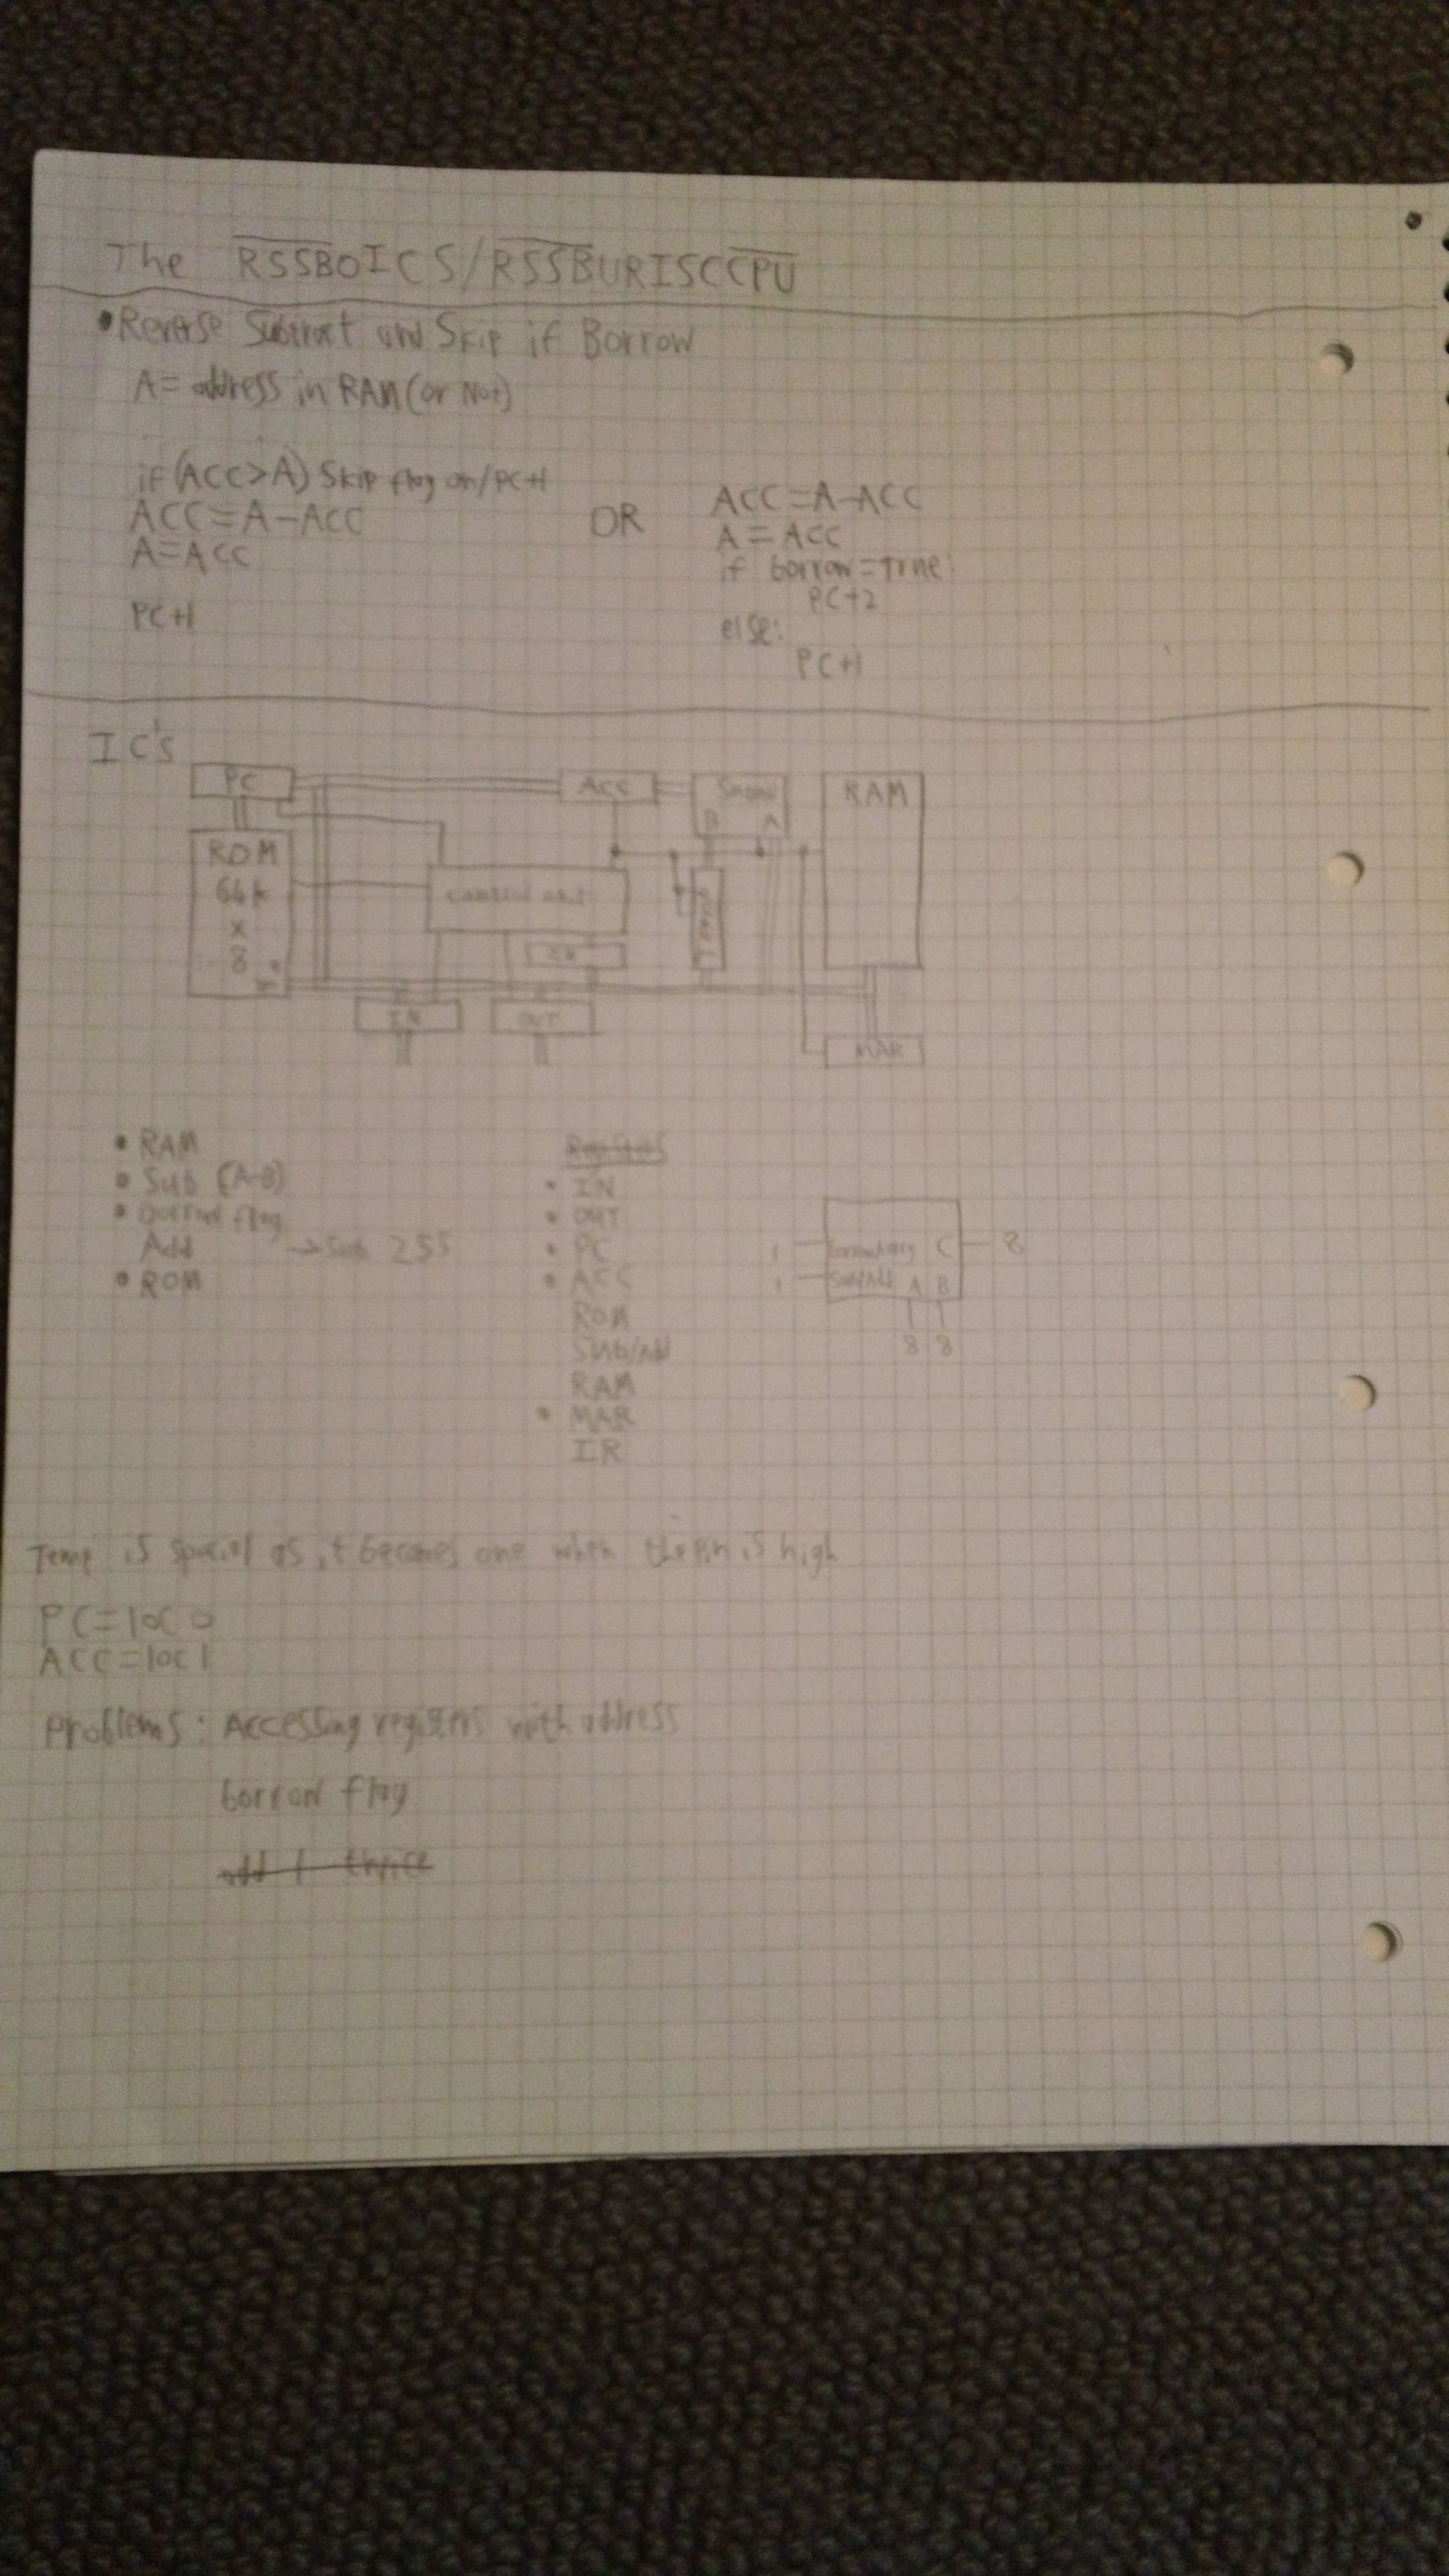 The RSSBOICS/RSSBURISCCPU
•Reverse Subtract and Skip if Borrow
A= address in RAM (or Not)
if (ACC>A) Skip flag on/PC+1
ACC=A-ACC
A=ACC
PC+1
OR
ACC=A-ACC
A=ACC
if borrow=True:
PC+2
else:
PC+1
IC's
PC
ACC
B A
RAM
ROM
64k
x
8
control unit
Temp
IR
IN
OUT
MAR
• RAM
• Sub (A-B)
• borrow flag
Add → Sub 255
• ROM
Registers
• IN
• OUT
• PC
• ACC
ROM
Sub/Add
RAM
• MAR
IR
1 C 8
1 Sub/Add A B
8 8
Temp is special as it becomes one when the pin is high
PC=loc 0
ACC=loc 1
Problems: Accessing registers with address
borrow flag
add 1 twice